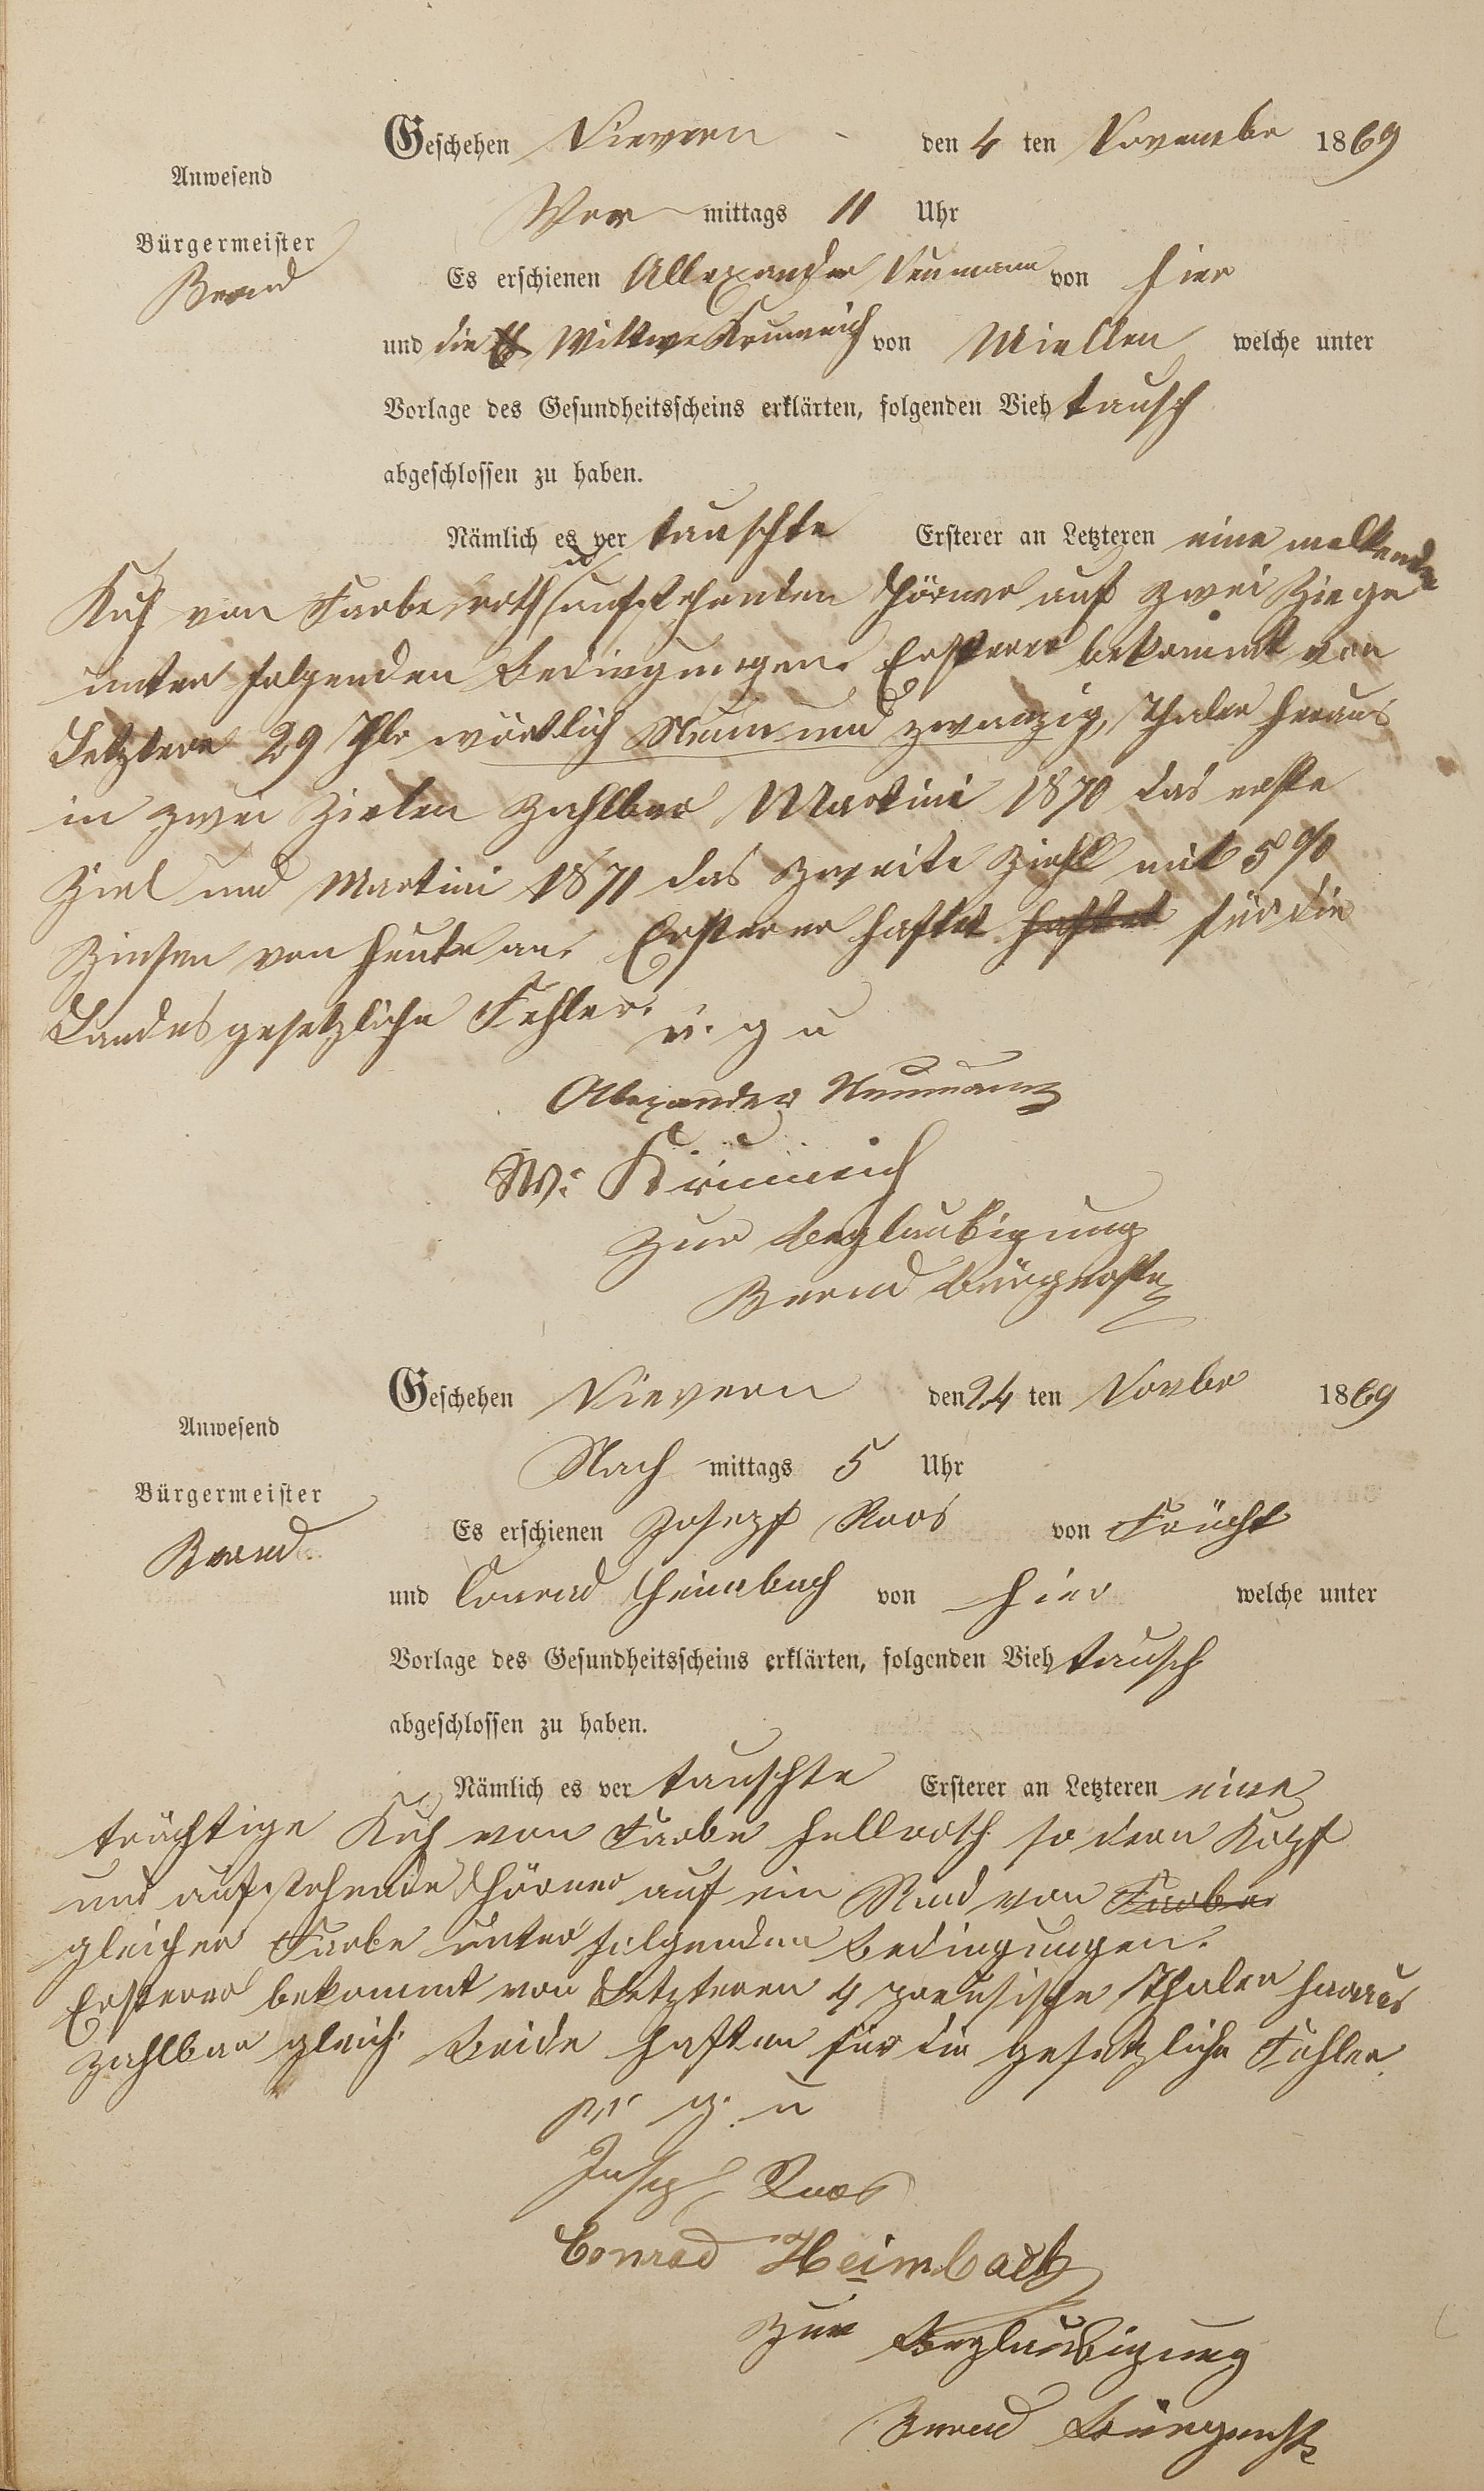 Geschehen Nievern - den 4 ten Novembr 1869
Anwesend
Vor mittags 11 Uhr
Bürgermeister
Bernd
Es erschienen Allexander Neumann von hier
und die Wittwe Krumeich von Miellen welche unter
Vorlage des Gesundheitsscheins erklärten, folgenden Vieh tausch
abgeschlossen zu haben.
Nämlich es ver tauschte Ersterer an Letzteren eine melkende
Kuh von Farbe roth u aufstehenden Hörner auf zwei Ziege
unter folgenden Bedingungen. Ersterer bekommt von
Letztere 29 Thlr wörtlich Neun und zwanzig, Thaler heraus
in zwei Zielen zahlbar Martini 1870 das erste
Ziel und Martini 1871 das zweite Ziehl mit 5 %
Zinsen von heute an. Ersterer haftet haftet für die
Landesgesetzliche Fehler.
v. g u
Alexander Neumann
W: Krumeich
Zur Beglaubigung
Bernd Bürgerstr
Geschehen Nievern den 24 ten Novbr 1869
Anwesend
Nach mittags 5 Uhr
Bürgermeister
Bernd
Es erschienen Joseph Roos von Frücht
und Conrad Heimbach von hier welche unter
Vorlage des Gesundheitsscheins erklärten, folgenden Vieh tausch
abgeschlossen zu haben.
Nämlich es ver tauschte Ersterer an Letzteren eine
trächtige Kuh von Farbe hellroth Kopf
und aufstehende Hörner auf ein Rind von Farbe
gleicher Farbe unter folgenden Bedingungen.
Ersterer bekommt von Letzteren 4 preusische Thaler heraus
zahlbar gleich. Beide haften für die gesetzliche Fehler.
v. g. u
Joseph Roos
Conrad Heimbach
Zur Beglaubigung
Bernd Bürgermstr